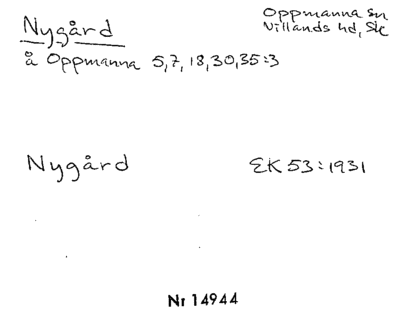 Nygård
Oppmanna sn
Villands hd, Sk
å Oppmanna 5,7,18,30,35:3
Nygård
EK 53:1931
Nr 14944